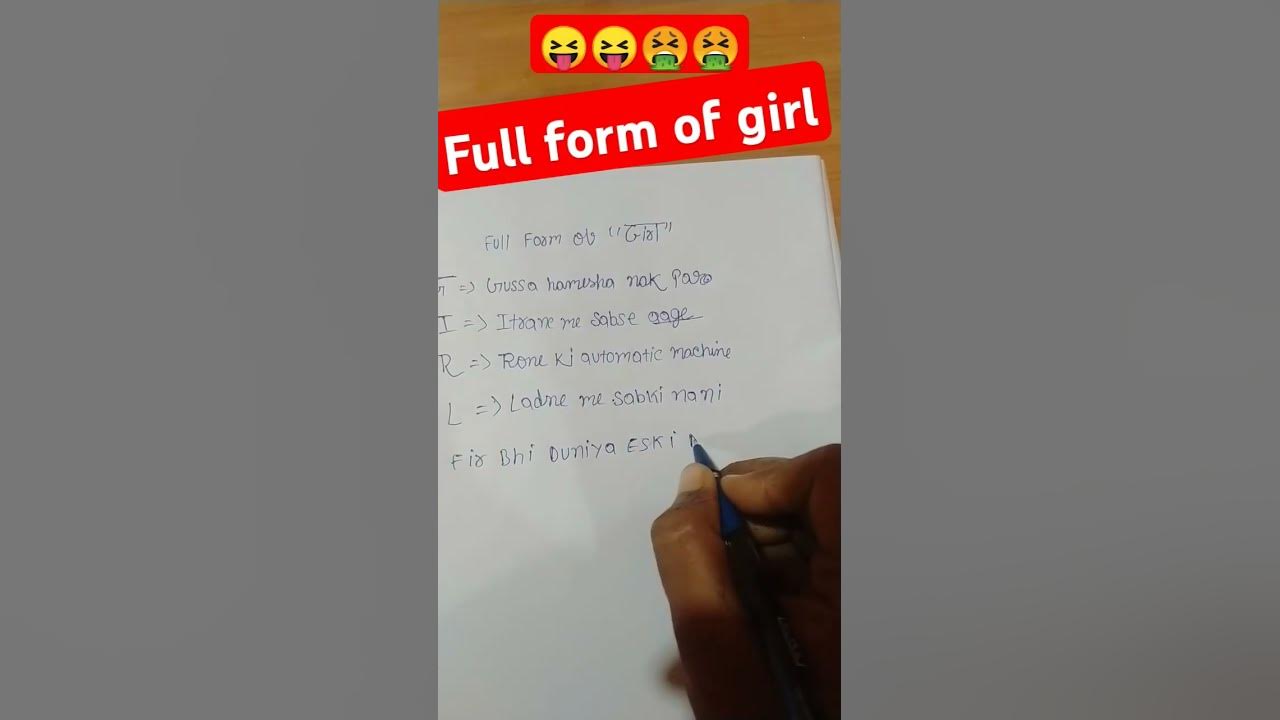 😝😝🤮🤮
Full form of girl
Full Form ob "Girl"
G => Gussa hamesha nak Par
I => Itrane me Sabse aage
R => Rone Ki automatic machine
L => Ladne me Sabki nani
Fir Bhi Duniya ESKi